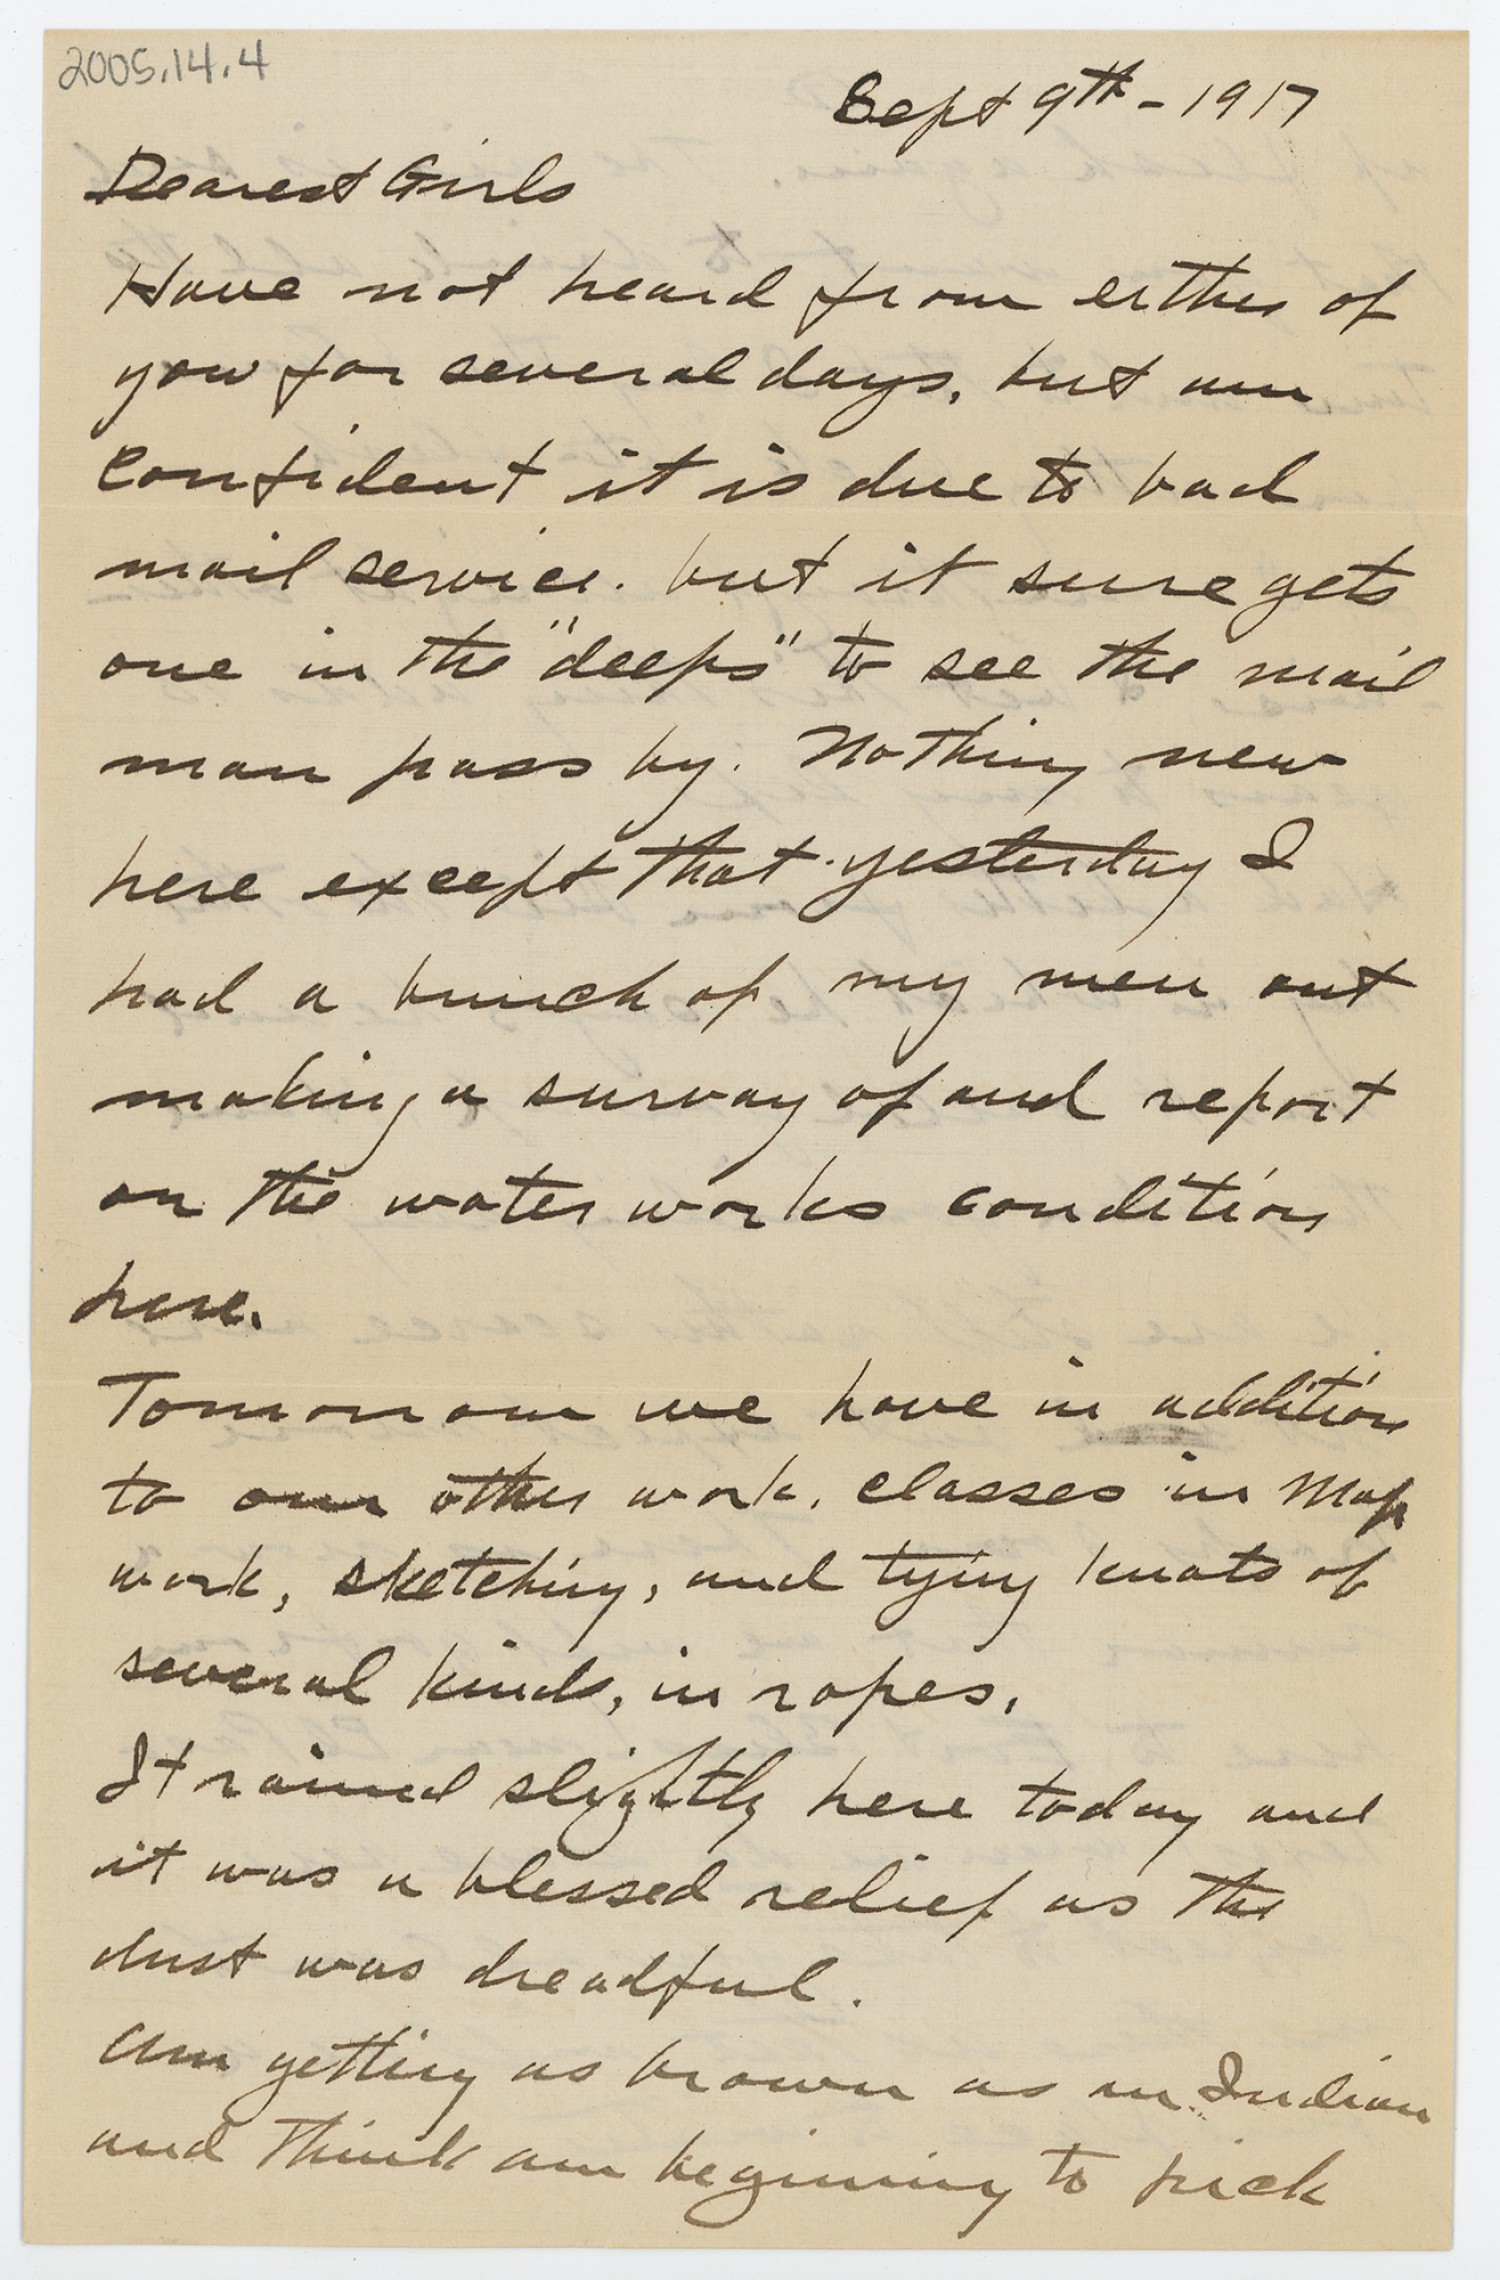 2005.14.4
Sept 9th - 1917
Dearest Girls
Have not heard from either of
you for several days, but am
confident it is due to bad
mail service. but it sure gets
one in the "deeps" to see the mail
man pass by. Nothing new
here except that yesterday I
had a bunch of my men out
making a survay of and report
on the water works condition
here.
Tomorrow we have in addition
to our other work, classes in Map
work, sketching, and tying knots of
several kinds, in ropes,
It rained slightly here today and
it was a blessed relief as the
dust was dreadful.
Am getting as brown as an Indian
and think am beginning to pick